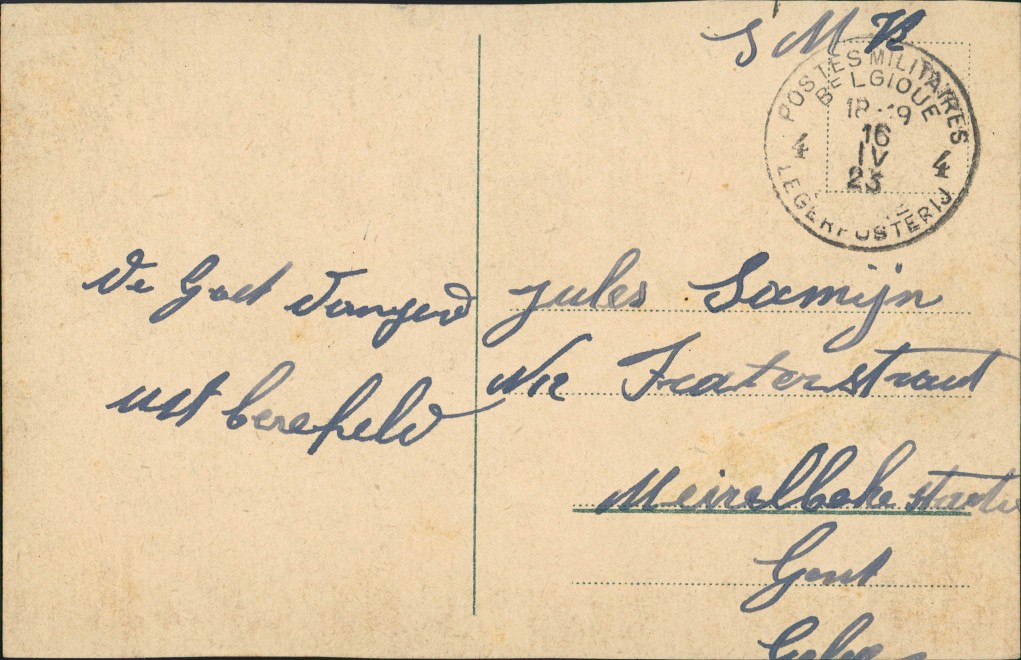 S M
POSTES MILITAIRES
BELGIQUE
18-19
16
IV
23
4 4
LEGERPOSTERIJ
De Goet
Jules Samijn
Fraterstraat
Meirelbeke statie
Gent